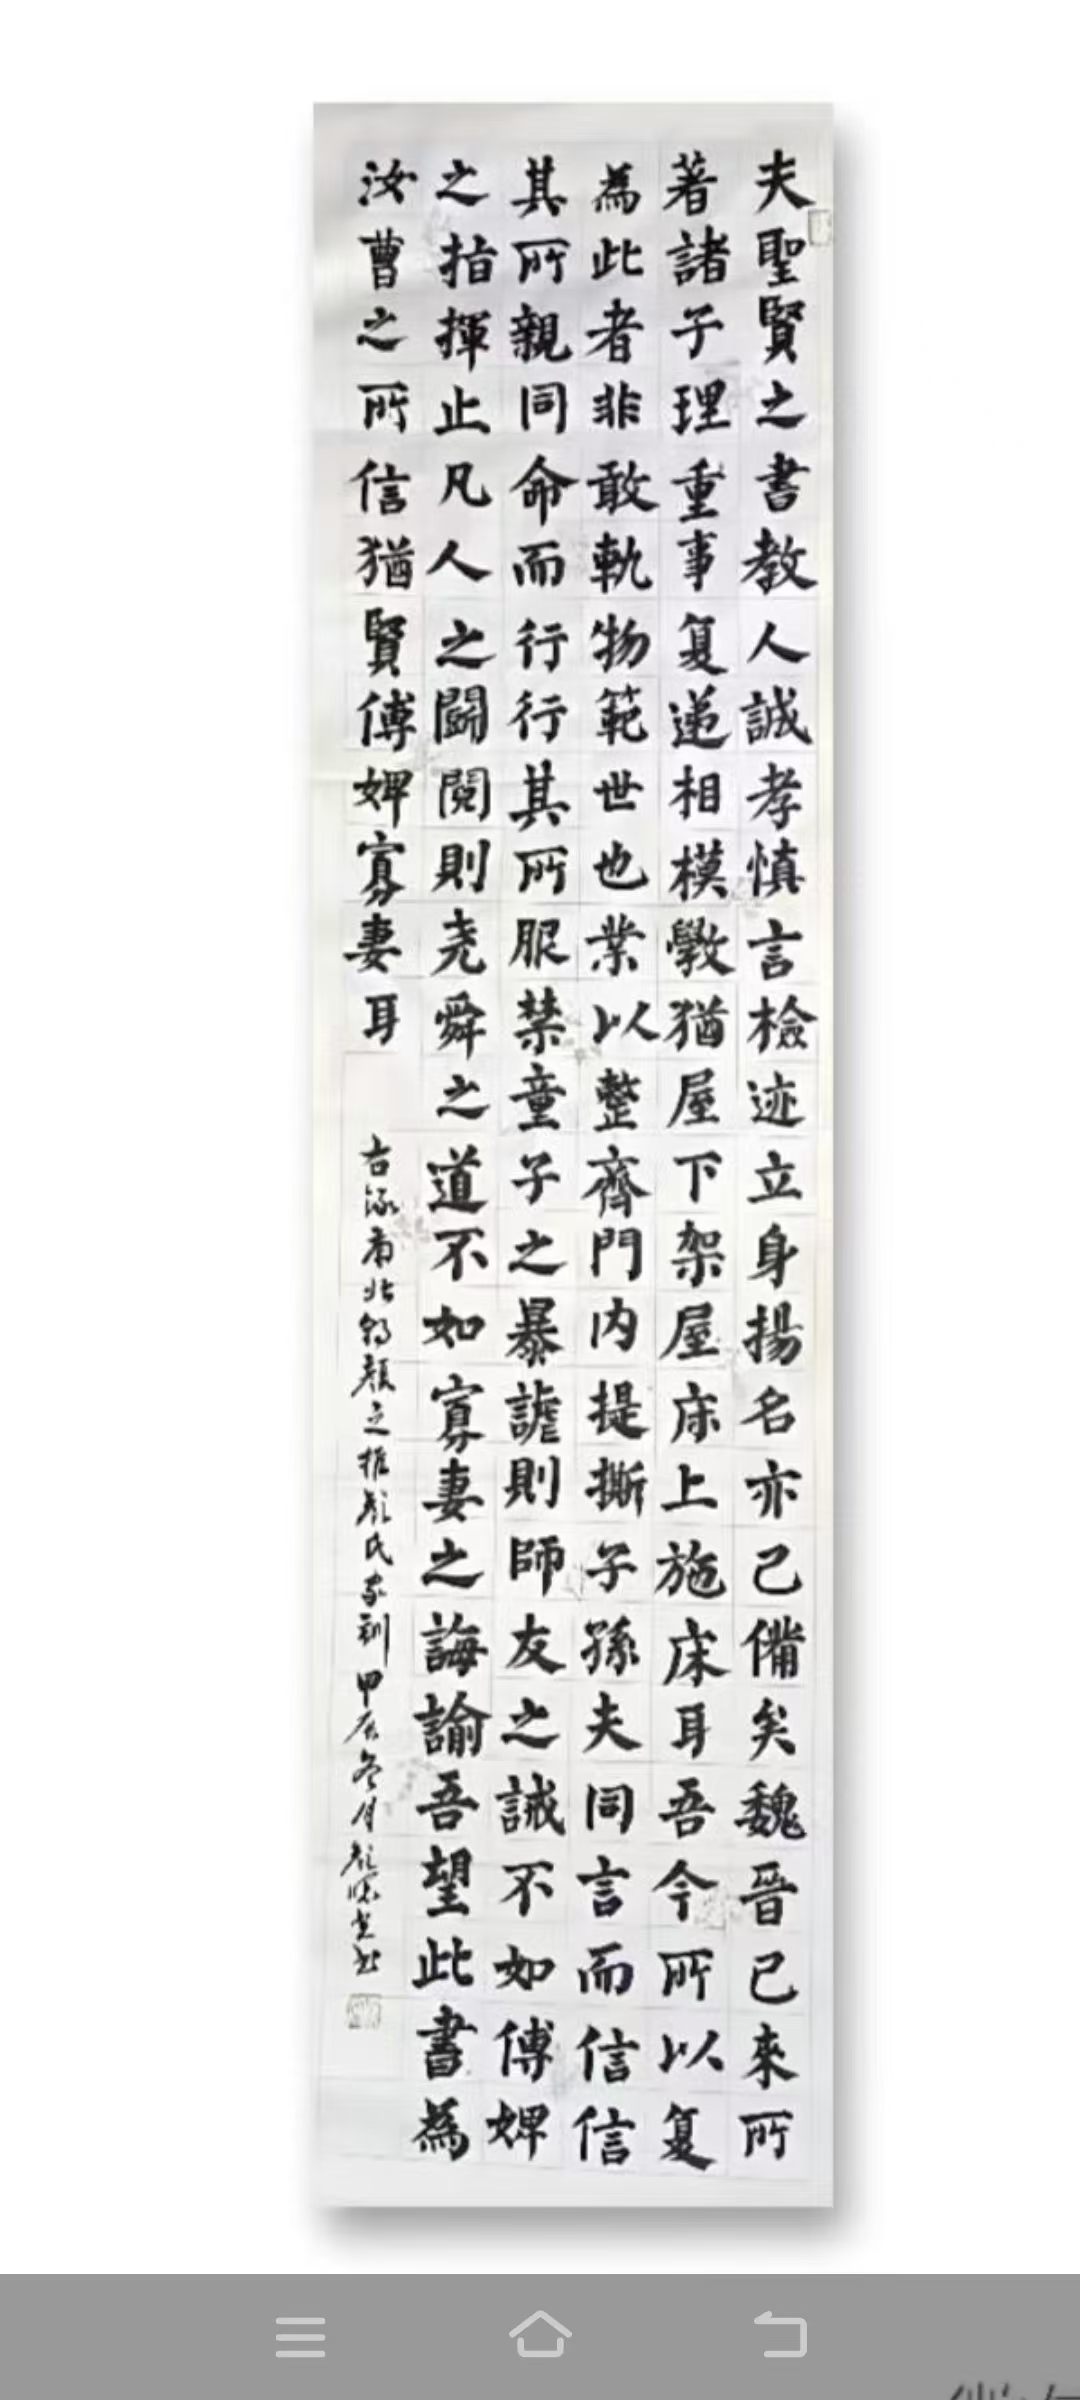 夫聖賢之書教人誠孝慎言檢迹立身揚名亦己備矣魏晉已來所
著諸子理重事复递相模斆猶屋下架屋床上施床耳吾今所以复
為此者非敢軌物範世也業以整齊門内提撕子孫夫同言而信信
其所親同命而行行其所服禁童子之暴謔則師友之誡不如傅婢
之指揮止凡人之鬪鬩則尭舜之道不如寡妻之誨諭吾望此書為
汝曹之所信猶賢傅婢寡妻耳
右錄南北朝顏之推顏氏家訓甲辰冬月顏